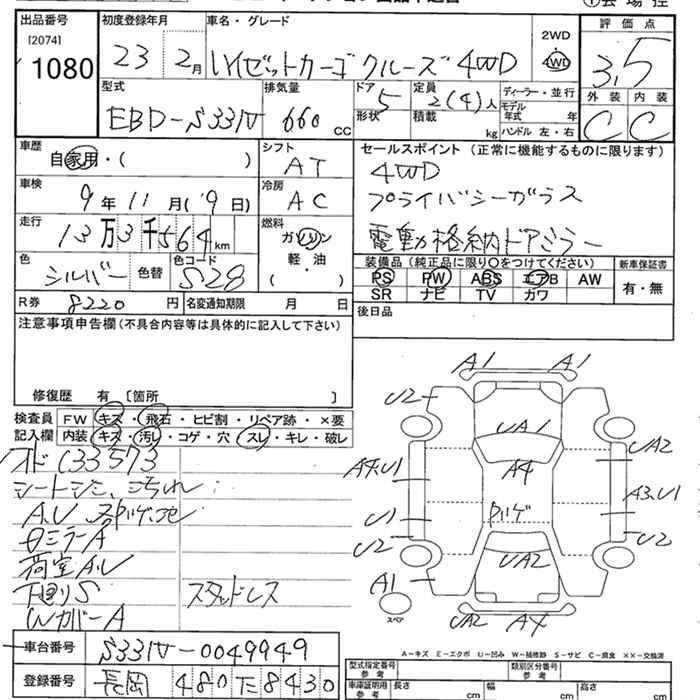 出品番号
[2074]
1080
初度登録年月
23 2月
車名・グレード
ハイゼットカーゴ クルーズ 4WD
2WD
4WD
評価点
3.5
外装 内装
C C
型式
EBD-S331V
排気量
660 cc
ドア
5
形状
定員
2(4)人
積載
kg
ディーラー・並行
モデル年式 年
ハンドル 左・右
車歴
自家用・( )
シフト
AT
セールスポイント (正常に機能するものに限ります)
4WD
プライバシーガラス
電動格納ドアミラー
車検
9年 11月(9日)
冷房
AC
走行
13万3千564km
燃料
ガソリン
軽・油
( )
色
シルバー
色替
色コード
S28
装備品 (純正品に限り〇をつけてください)
PS PW ABS エアB AW
SR ナビ TV カワ
新車保証書
有・無
R券 8220円
名変通知期限 月 日
後日品
注意事項申告欄(不具合内容等は具体的に記入して下さい)
修復歴 有 [箇所 ]
検査員
記入欄
FW キズ・飛石・ヒビ割・リペア跡・×要
内装 キズ・汚レ・コゲ・穴・スレ・キレ・破レ
オド 133573
シートシミ、汚れ
A.U
日ミラーA
荷室A.U
下廻りS
スタッドレス
WカバーA
A1 A1
U2
UA1
UA2
A4.U1
A4
A3.U1
U1
U2
U2
UA2
A1
UA2 A4
スペア
A-キズ E-エクボ U-凹み W-補修跡 S-サビ C-腐食 ××-交換済
車台番号 S331V-0049949
登録番号 長岡 480 た 8430
型式指定番号
参考
類別区分番号
参考
車庫証明用
参考
長さ cm
幅 cm
高さ cm